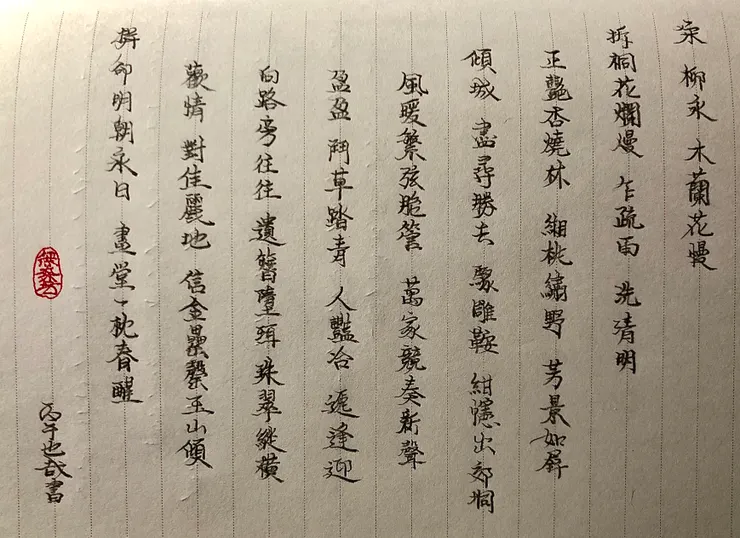 宋 柳永 木蘭花慢
拆桐花爛熳 乍疏雨 洗清明
正艷杏燒林 緗桃繡野 芳景如屏
傾城 盡尋勝去 驟雕鞍 紺幰出郊坰
風暖繁弦脆管 萬家競奏新聲
盈盈 鬥草踏青 人豔冶 遞逢迎
向路旁往往 遺簪墮珥 珠翠縱橫
歡情 對佳麗地 信金罍罄玉山傾
拚卻明朝永日 畫堂一枕春酲
丙午也哉書